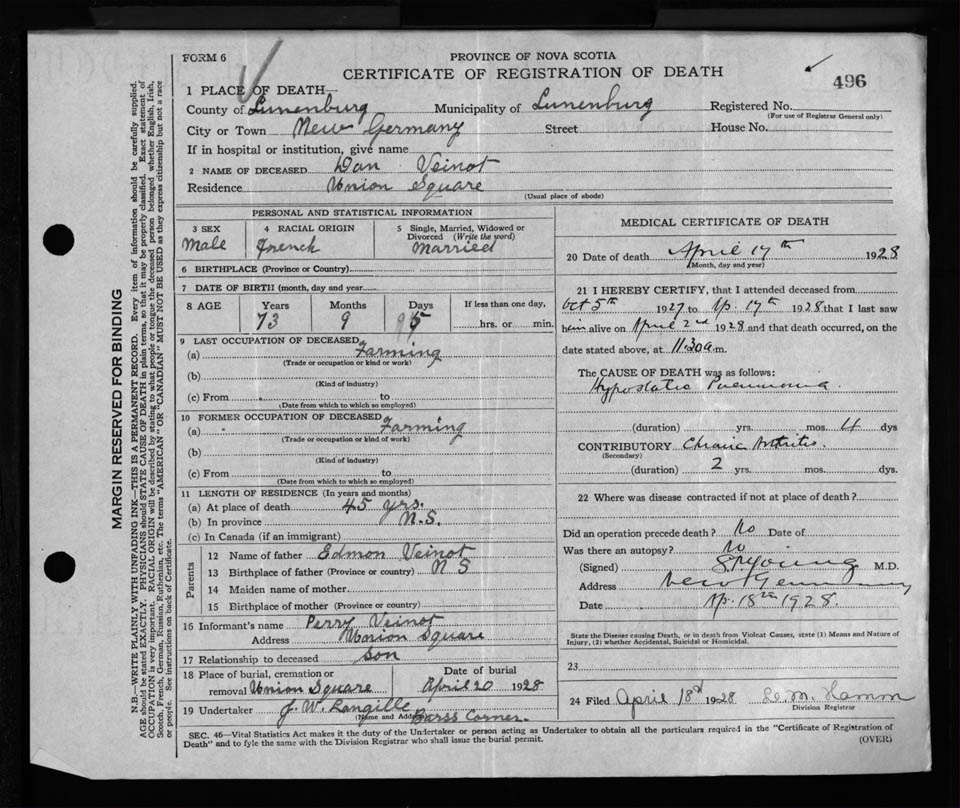 FORM 6
PROVINCE OF NOVA SCOTIA
CERTIFICATE OF REGISTRATION OF DEATH
496
1 PLACE OF DEATH—
County of Lunenburg Municipality of Lunenburg Registered No.
(For use of Registrar General only)
City or Town New Germany Street House No.
If in hospital or institution, give name
2 NAME OF DECEASED Dan Veinot
Residence Union Square
(Usual place of abode)
PERSONAL AND STATISTICAL INFORMATION
3 SEX Male
4 RACIAL ORIGIN French
5 Single, Married, Widowed or Divorced (Write the word) Married
6 BIRTHPLACE (Province or Country)
7 DATE OF BIRTH (month, day and year)
8 AGE Years Months Days If less than one day,
73 9 5 hrs. or min.
9 LAST OCCUPATION OF DECEASED
(a) Farming
(Trade or occupation or kind of work)
(b)
(Kind of industry)
(c) From to
(Date from which to which so employed)
10 FORMER OCCUPATION OF DECEASED
(a) Farming
(Trade or occupation or kind of work)
(b)
(Kind of industry)
(c) From to
(Date from which to which so employed)
11 LENGTH OF RESIDENCE (In years and months)
(a) At place of death 45 yrs.
(b) In province N.S.
(c) In Canada (if an immigrant)
Parents
12 Name of father Edmon Veinot
13 Birthplace of father (Province or country) N S
14 Maiden name of mother
15 Birthplace of mother (Province or country)
16 Informant's name Perry Veinot
Address Union Square
17 Relationship to deceased Son
18 Place of burial, cremation or removal Union Square
Date of burial April 20 1928
19 Undertaker J. W. Langille
(Name and Address) Barss Corner.
MEDICAL CERTIFICATE OF DEATH
20 Date of death April 17th 1928
(Month, day and year)
21 I HEREBY CERTIFY, that I attended deceased from
Oct 5th 1927 to Ap. 17th 1928 that I last saw
him alive on April 2nd 1928 and that death occurred, on the
date stated above, at 11.30 a m.
The CAUSE OF DEATH was as follows:
Hypostatic Pneumonia.
(duration) yrs. mos. 4 dys
CONTRIBUTORY Chronic Arthritis.
(Secondary)
(duration) 2 yrs. mos. dys.
22 Where was disease contracted if not at place of death?
Did an operation precede death? No Date of
Was there an autopsy? No
(Signed) Young M.D.
Address New Germany
Date Ap. 18th 1928.
State the Disease causing Death, or in death from Violent Causes, state (1) Means and Nature of
Injury, (2) whether Accidental, Suicidal or Homicidal.
23
24 Filed April 18th 1928 Hamm
Division Registrar
SEC. 46—Vital Statistics Act makes it the duty of the Undertaker or person acting as Undertaker to obtain all the particulars required in the "Certificate of Registration of
Death" and to fyle the same with the Division Registrar who shall issue the burial permit.
(OVER)
MARGIN RESERVED FOR BINDING
N.B.—WRITE PLAINLY WITH UNFADING INK—THIS IS A PERMANENT RECORD. Every item of information should be carefully supplied.
AGE should be stated EXACTLY. PHYSICIANS should STATE CAUSE OF DEATH in plain terms, so that it may be properly classified. Exact statement of
OCCUPATION is very important. RACIAL ORIGIN will be described by stating to what people or tongue the deceased person belonged whether English, Irish,
Scotch, French, German, Russian, Ruthenian, etc. The terms "AMERICAN" OR "CANADIAN" MUST NOT BE USED as they express citizenship but not a race
or people. See instructions on back of Certificate.